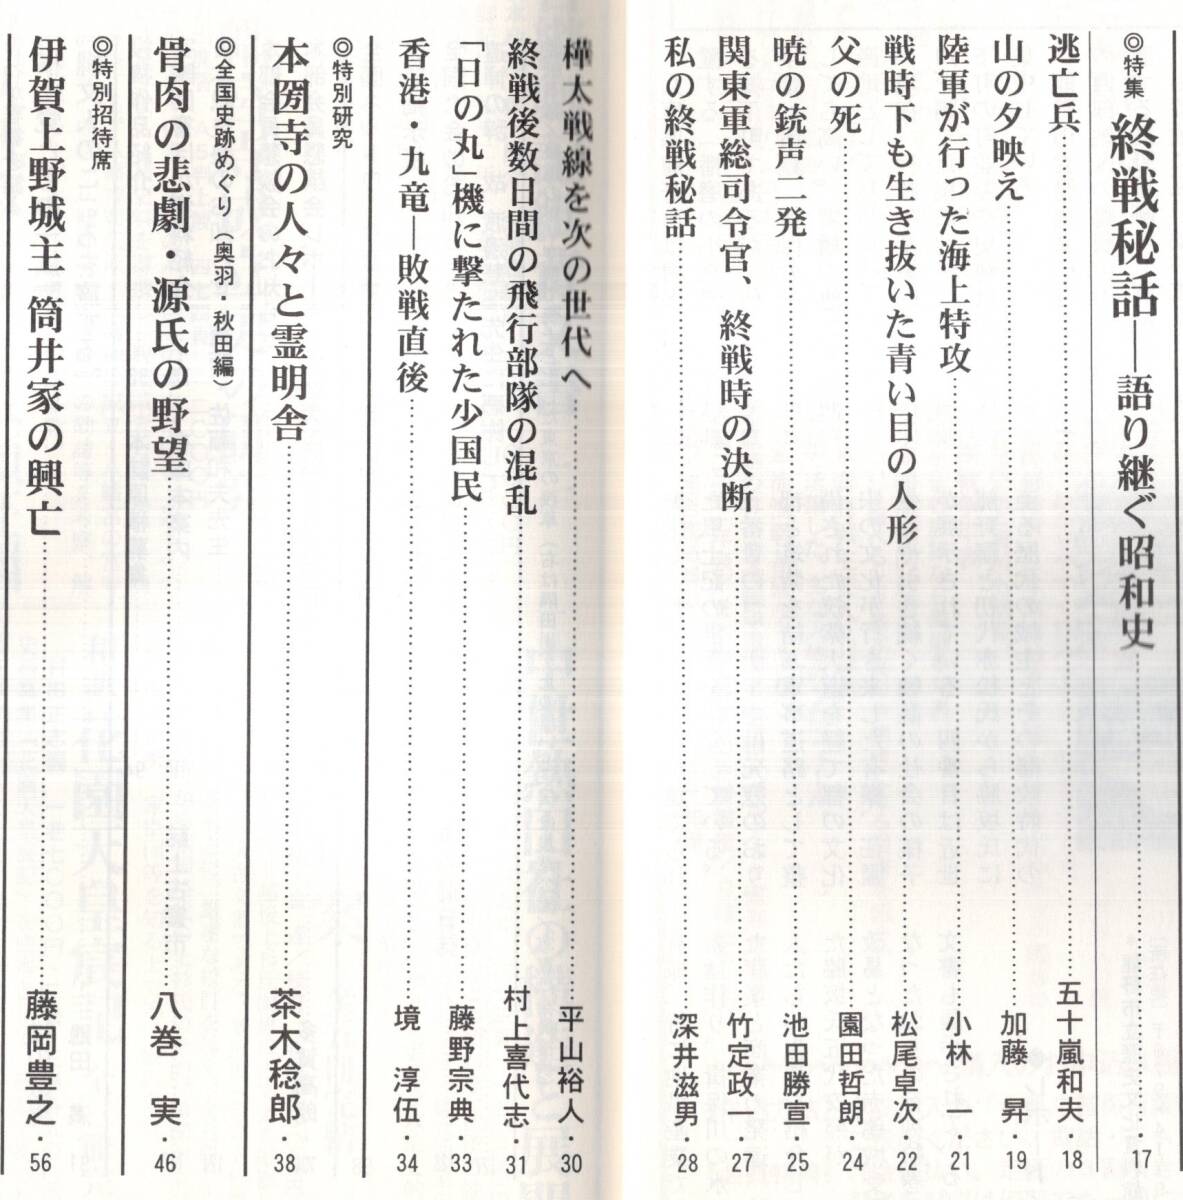 ◎特集
終戦秘話―語り継ぐ昭和史 17
逃亡兵 五十嵐和夫 18
山の夕映え 加藤 昇・19
陸軍が行った海上特攻 小林 一 21
戦時下も生き抜いた青い目の人形 松尾卓次 22
父の死 園田哲朗 24
暁の銃声二発 池田勝宣 25
関東軍総司令官、終戦時の決断 竹定政一・27
私の終戦秘話 深井滋男 28
樺太戦線を次の世代へ 平山裕人 30
終戦後数日間の飛行部隊の混乱 村上喜代志・31
「日の丸」機に撃たれた少国民 藤野宗典・33
香港・九竜―敗戦直後 境 淳伍・34
◎特別研究
本圀寺の人々と霊明舎 茶木稔郎・38
◎全国史跡めぐり(奥羽・秋田編)
骨肉の悲劇・源氏の野望 八巻 実・46
◎特別招待席
伊賀上野城主 筒井家の興亡 藤岡豊之・56